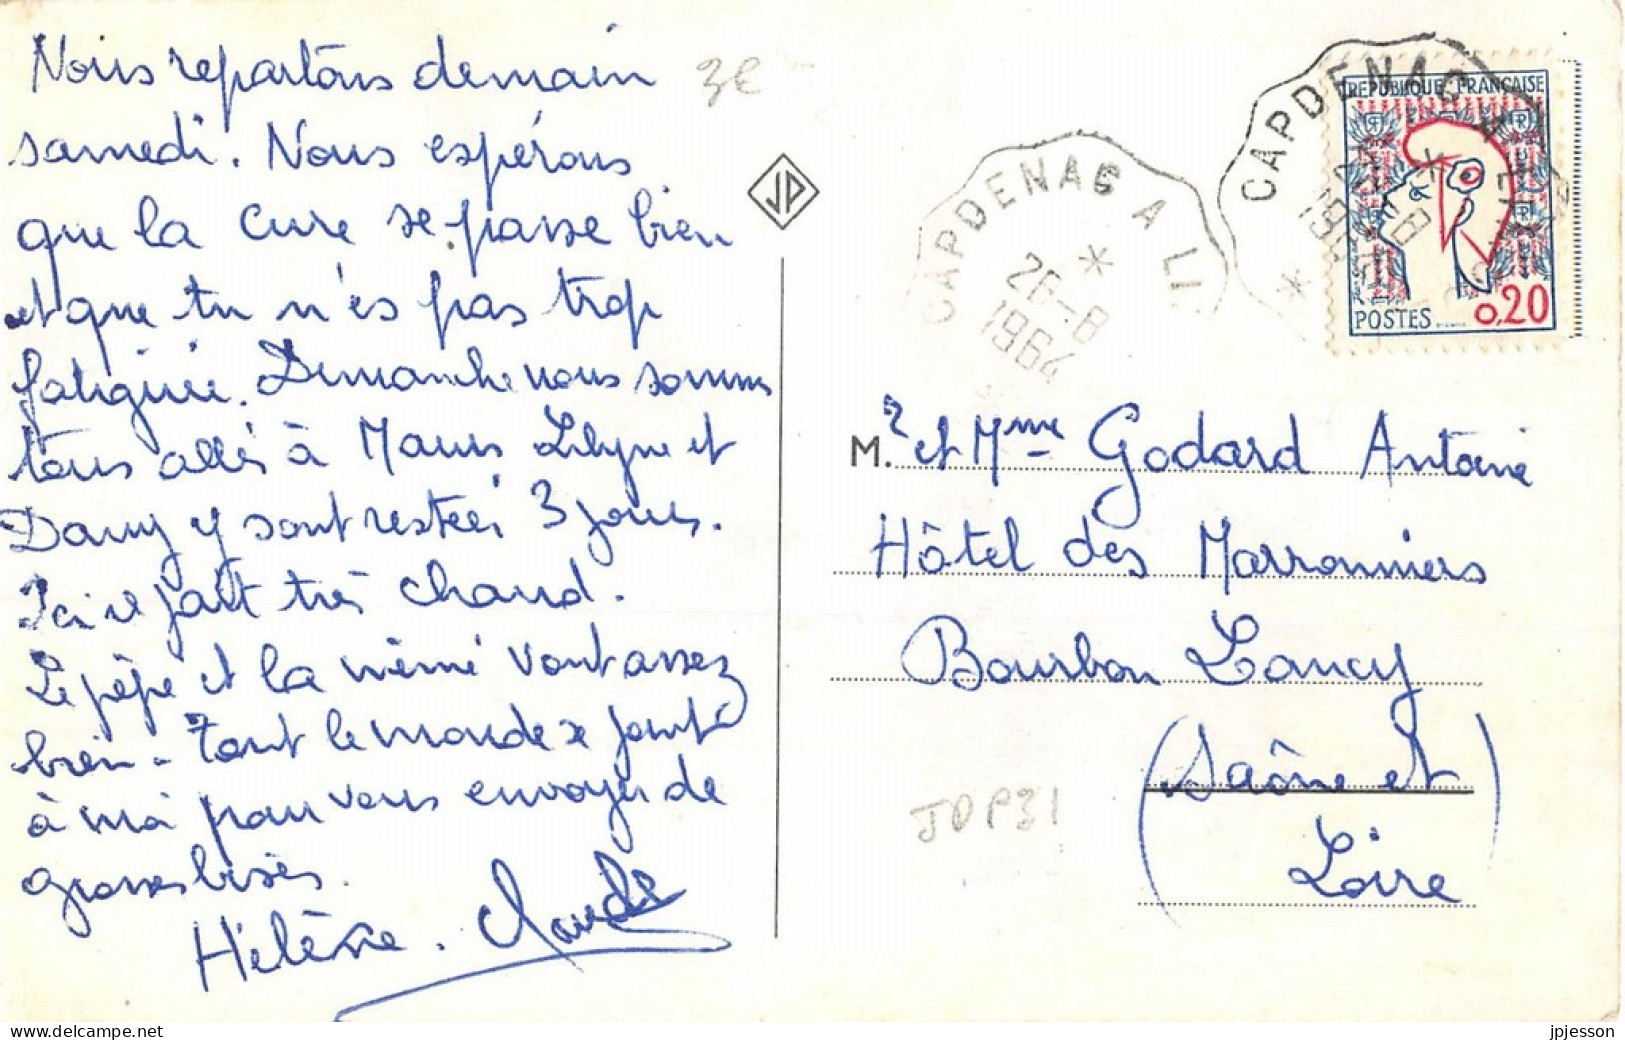 Nous repartons demain
samedi. Nous espérons
que la cure se passe bien
et que tu n'es pas trop
fatiguée. Dimanche nous sommes
tous allés à Maurs Lilyne et
Dany y sont restées 3 jours.
Ici il fait très chaud.
Le pépé et la mémé vont assez
bien - Tout le monde se joint
à moi pour vous envoyer de
grosses bises.
Hélène. Claude
3€
JP
CAPDENAC A LI
26-8
1964
CAPDENAC A
RÉPUBLIQUE FRANÇAISE
POSTES 0,20
M.r et Mme Godard Antoine
Hôtel des Marronniers
Bourbon Lancy
(Saône et
Loire)
JDP31
www.delcampe.net
jpjesson